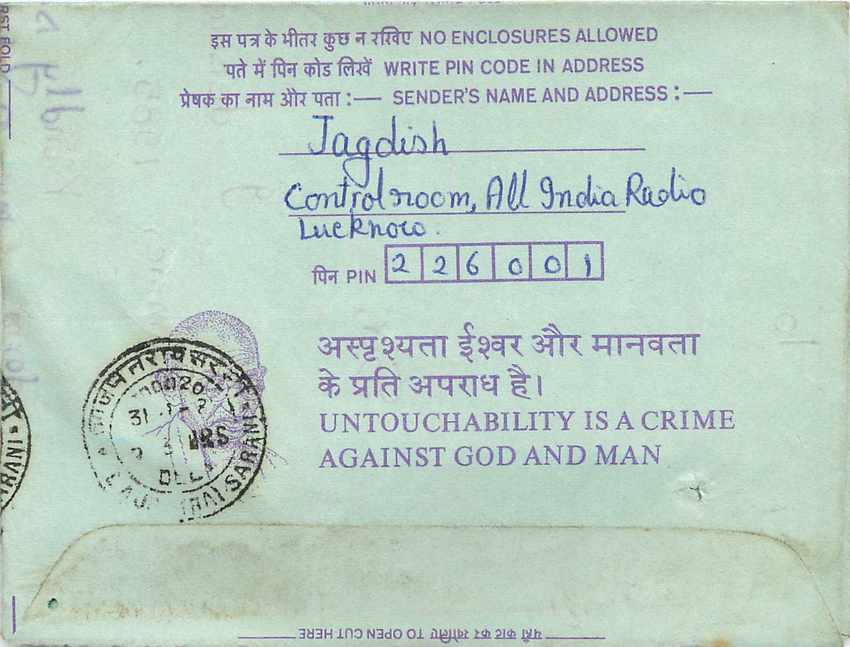 इस पत्र के भीतर कुछ न रखिए NO ENCLOSURES ALLOWED
पते में पिन कोड लिखें WRITE PIN CODE IN ADDRESS
प्रेषक का नाम और पता :— SENDER'S NAME AND ADDRESS :—
Jagdish
Controlroom, All India Radio
Lucknow.
पिन PIN 226001
अस्पृश्यता ईश्वर और मानवता
के प्रति अपराध है।
UNTOUCHABILITY IS A CRIME
AGAINST GOD AND MAN
SARANI
यहाँ काट कर खोलिए TO OPEN CUT HERE